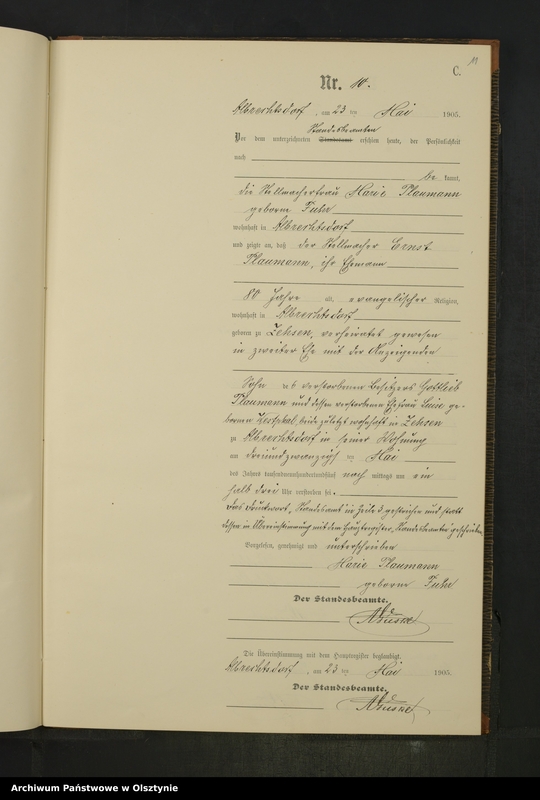 11
C.
Nr. 10.
Albrechtsdorf, am 23 ten Mai 1905.
Standesbeamten
Vor dem unterzeichneten Standesamt erschien heute, der Persönlichkeit
nach
be kannt,
die Stellmacherfrau Marie Plaumann
geborne Fuhr
wohnhaft in Albrechtsdorf
und zeigte an, daß der Stellmacher Ernst
Plaumann, ihr Ehemann
80 Jahre alt, evangelischer Religion,
wohnhaft in Albrechtsdorf
geboren zu Zehsen, verheiratet gewesen
in zweiter Ehe mit der Anzeigenden
Sohn des verstorbenen Besitzers Gottlieb
Plaumann und dessen verstorbenen Ehefrau ge-
bornen Westphal, beide zuletzt wohnhaft in Zehsen
zu Albrechtsdorf in seiner Wohnung
am dreiundzwanzigsten Mai
des Jahres tausendneunhundertundfünf nach mittags um ein
halb drei Uhr verstorben sei.
Das Druckwort „Standesamt" in Zeile 5 gestrichen und statt
dessen in Übereinstimmung mit dem Hauptregister „Standesbeamten" geschrieben.
Vorgelesen, genehmigt und unterschrieben
Marie Plaumann
geborne Fuhr
Der Standesbeamte.
Die Übereinstimmung mit dem Hauptregister beglaubigt.
Albrechtsdorf, am 23 ten Mai 1905.
Der Standesbeamte.
Archiwum Państwowe w Olsztynie